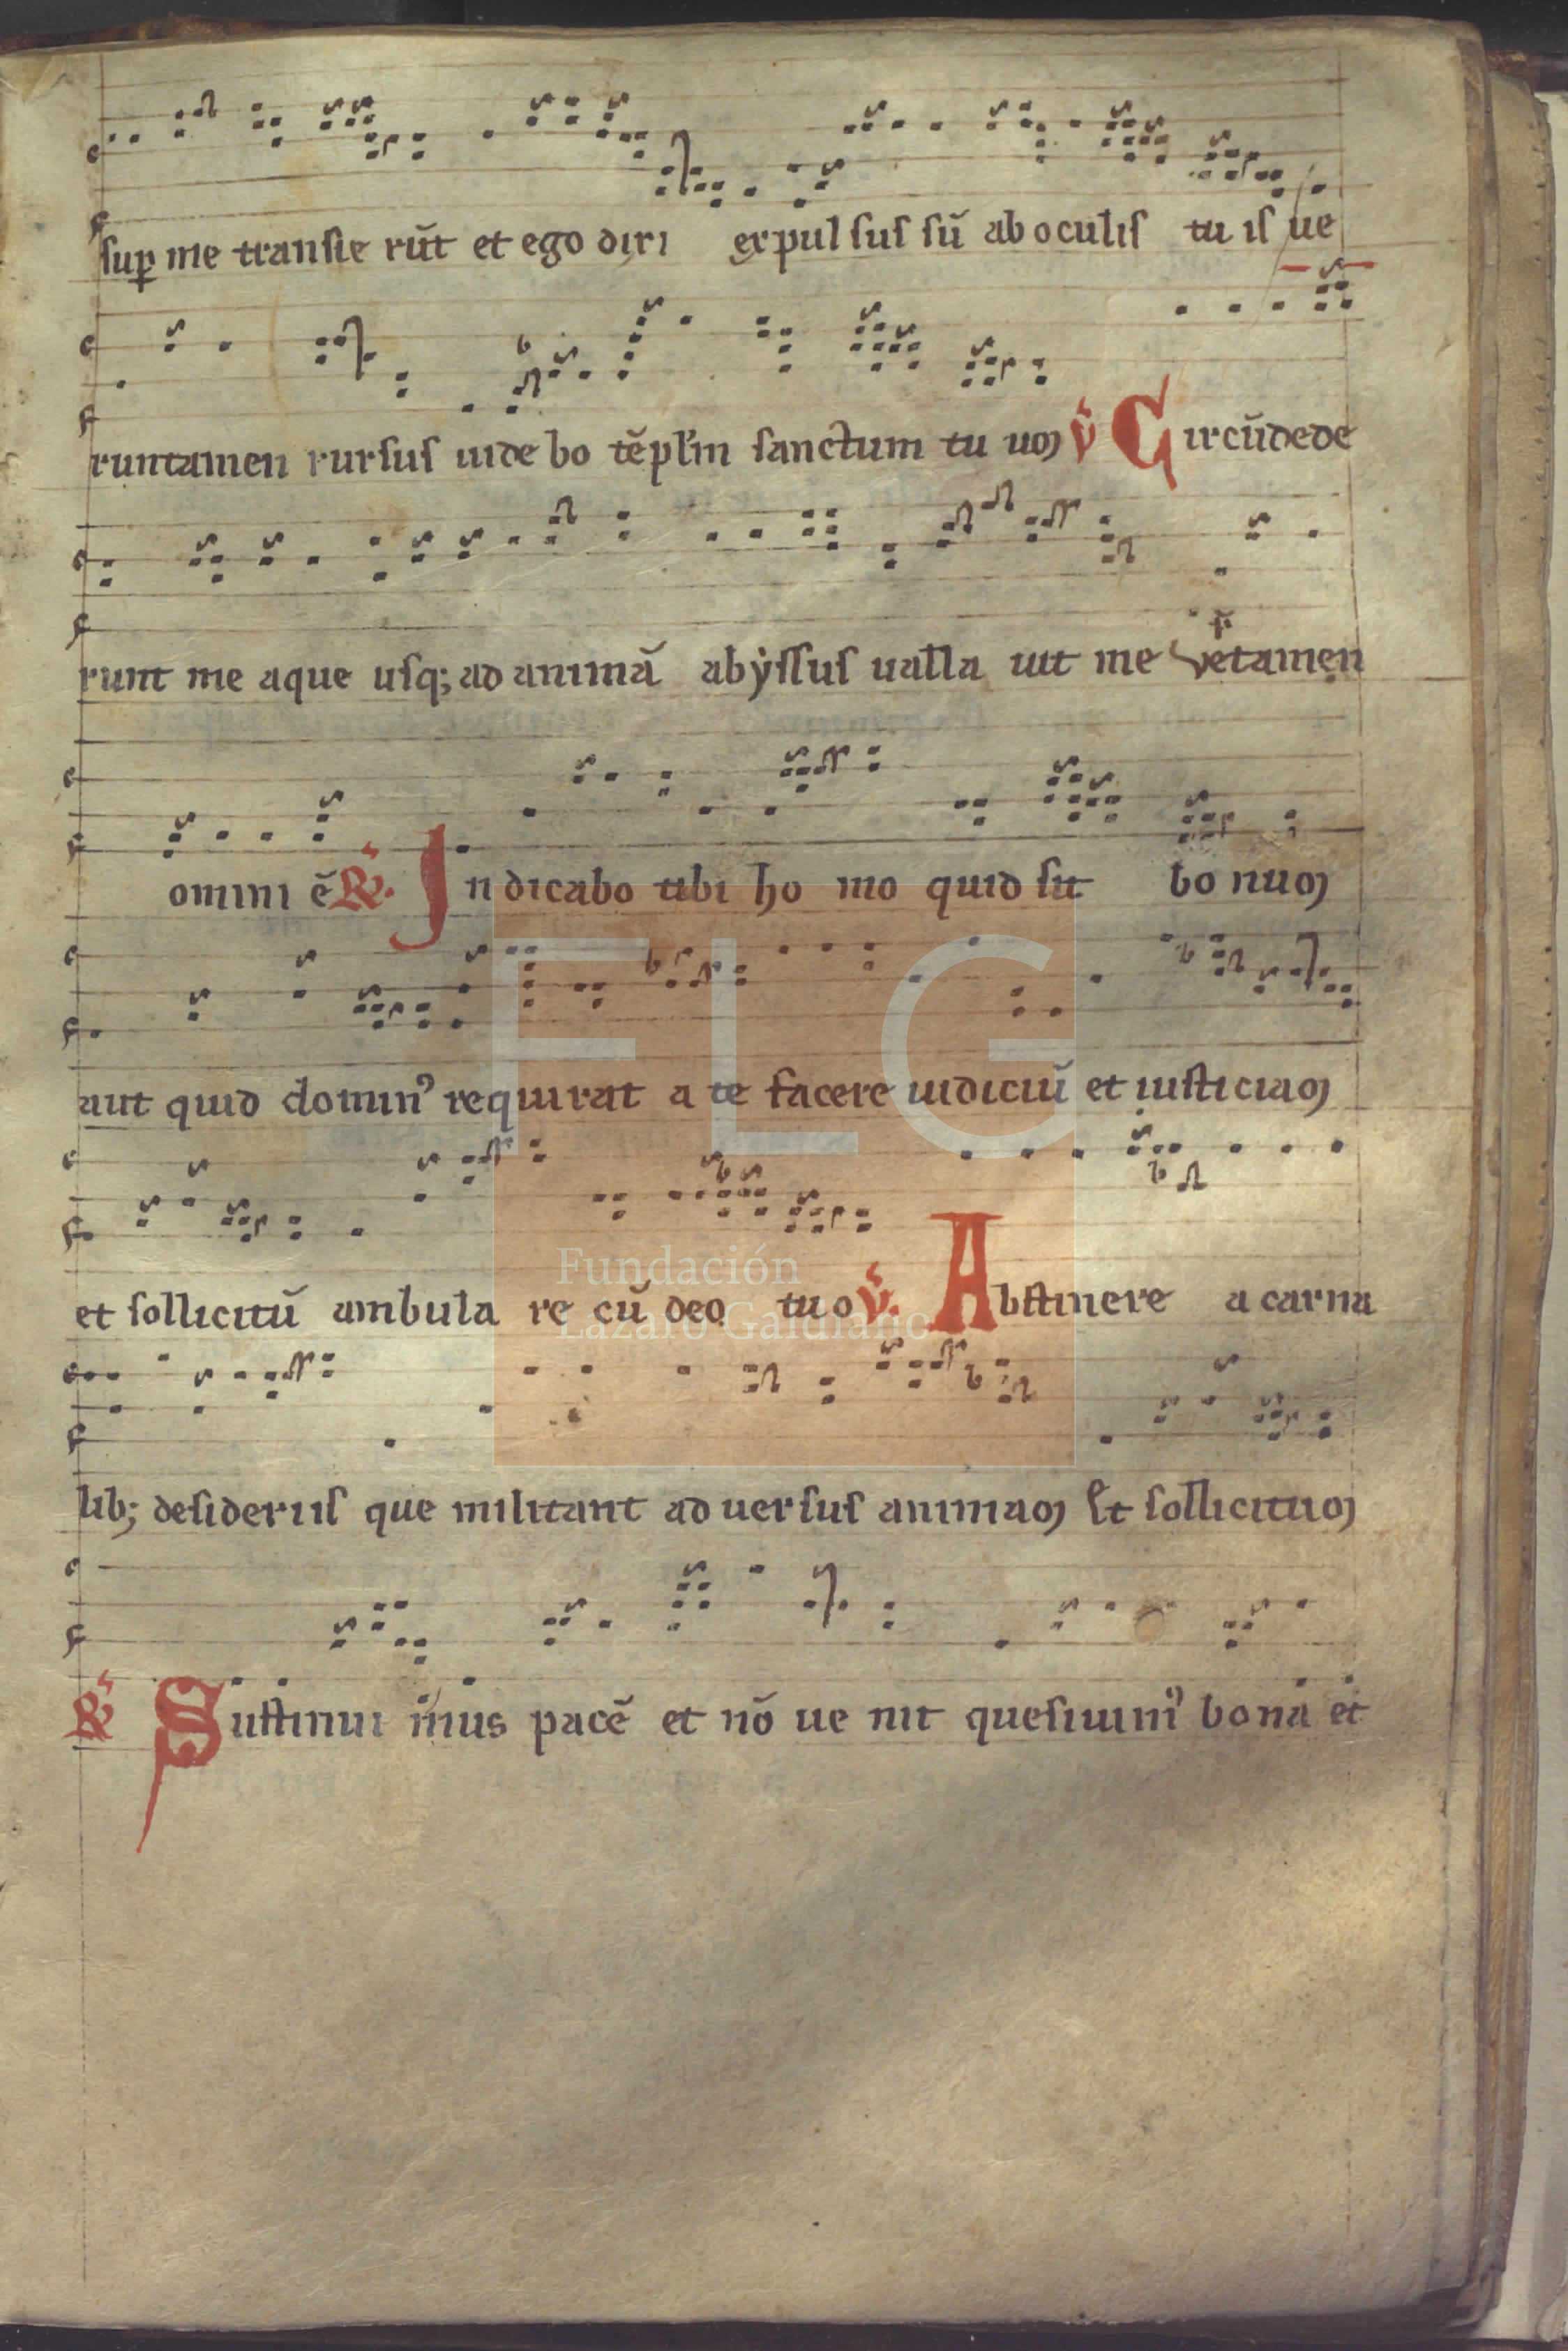 sup me transie rūt et ego dixi expulsus sū ab oculis tuis ue
runtamen rursus uidebo tēplm sanctum tuuom ṽ Circūdede
runt me aque usq; ad animā abyssus ualla uit me Vetamen
omini ē R̃. Indicabo tibi homo quid sit bonum
aut quid domin⁹ requirat a te facere iudiciū et iusticiam
et sollicitū ambulare cū deo tuo ṽ. Abstinere a carna
lib; desideriis que militant aduersus animam Et sollicitum
R̃ Sustinui mus pacē et nō uenit quesiuim⁹ bona et
FLG
Fundación
Lázaro Galdiano